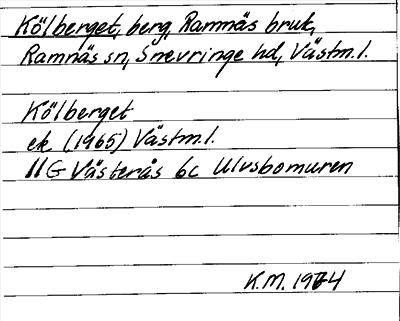 Kölberget, berg, Ramnäs bruk,
Ramnäs sn, Snevringe hd, Västm.l.
Kölberget
ek (1965) Västm.l.
11G Västerås 6c Ulvsbomuren
K.M. 1974